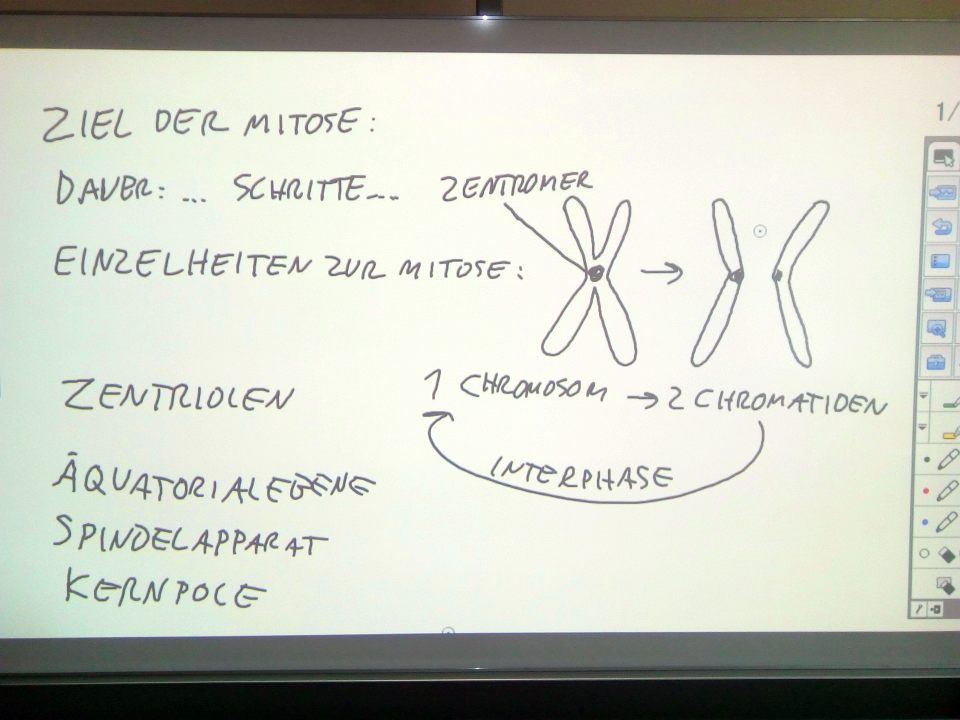 ZIEL DER MITOSE:
1/
DAUER: ... SCHRITTE...
ZENTROMER
EINZELHEITEN ZUR MITOSE:
ZENTRIOLEN
1 CHROMOSOM → 2 CHROMATIDEN
INTERPHASE
ÄQUATORIALEBENE
SPINDELAPPARAT
KERNPOLE